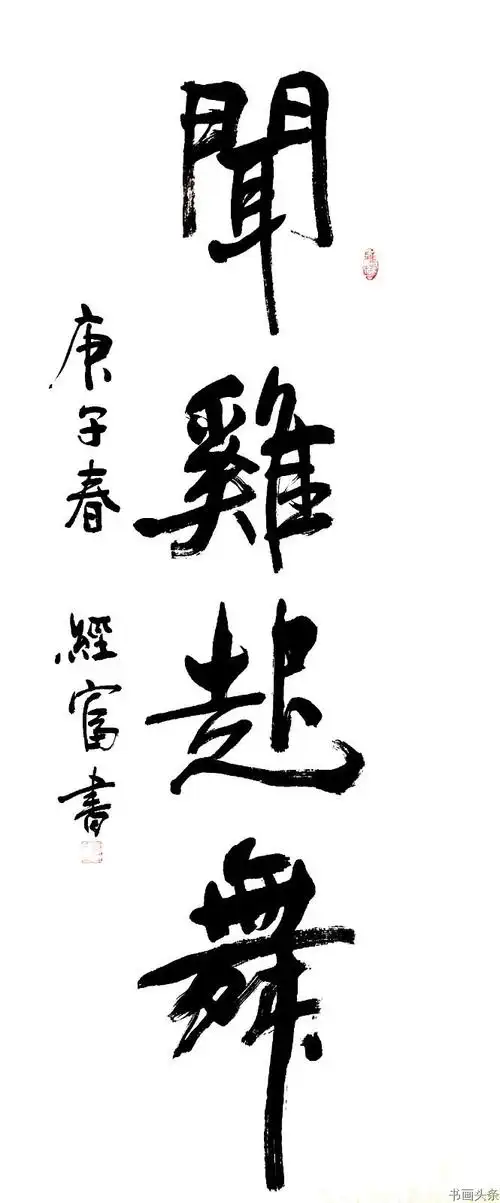 聞雞起舞
庚子春 經富書
书画头条